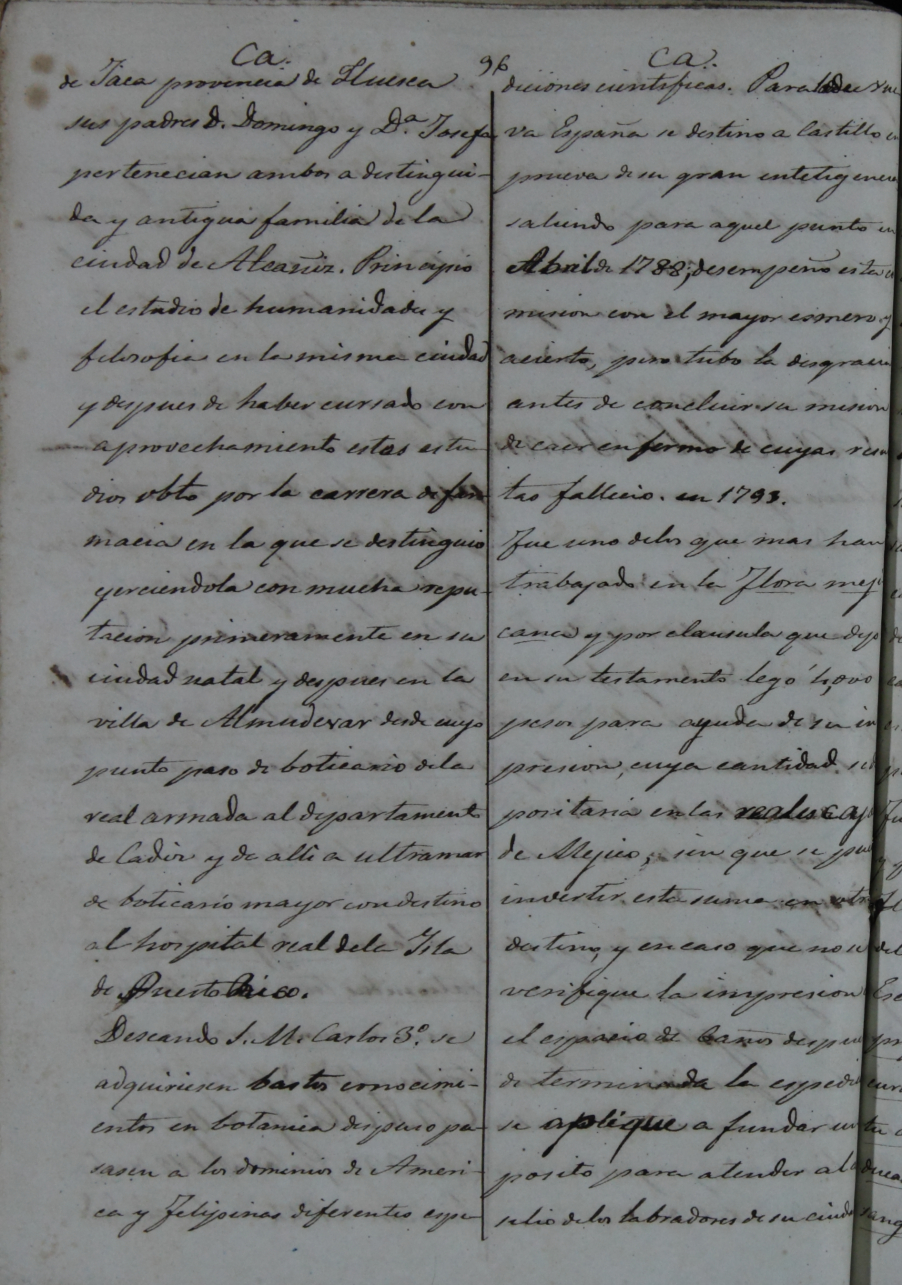 Ca.
96
Ca.
de Jaca provincia de Huesca
sus padres D. Domingo y D.ª Josefa
pertenecian ambos a distingui-
da y antigua familia de la
ciudad de Alcañiz. Principio
el estudio de humanidades y
filosofia en la misma ciudad
y despues de haber cursado con
aprovechamiento estos estu
dios obto por la carrera de far
macia en la que se destinguio
egerciendola con mucha repu-
tacion primeramente en su
ciudad natal y despues en la
villa de Almudevar desde cuyo
punto paso de boticario de la
real armada al departamento
de Cadiz y de alli a ultramar
de boticario mayor con destino
al hospital real de la Isla
de Puerto Rico.
Deseando S. M. Carlos 3º. se
adquiriesen bastos conocimi-
entos en botanica dispuso pa-
sasen a los dominios de Ameri-
ca y Filipinas diferentes espe
diciones cientificas. Para la de nue
va España se destino a Castillo
prueva de su gran inteligencia
saliendo para aquel punto en
Abril de 1788; desempeño esta
mision con el mayor esmero y
acierto, pero tubo la desgracia
antes de concluir su mision
de caer enfermo de cuyas resu
tas fallecio. en 1793.
Fue uno de los que mas han
trabajado en la Flora meji
cana y por clausula que dejo
en su testamento legó
pesos para ayuda de su im
presion, cuya cantidad se
positaria en las reales caj
de Mejico, sin que se pue
invertir esta suma en otro
destino, y en caso que no se
verifique la impresion
el espacio de 6 años despues
de terminada la espedi
se aplique a fundar un
posito para atender al
silio de los labradores de su ciuda